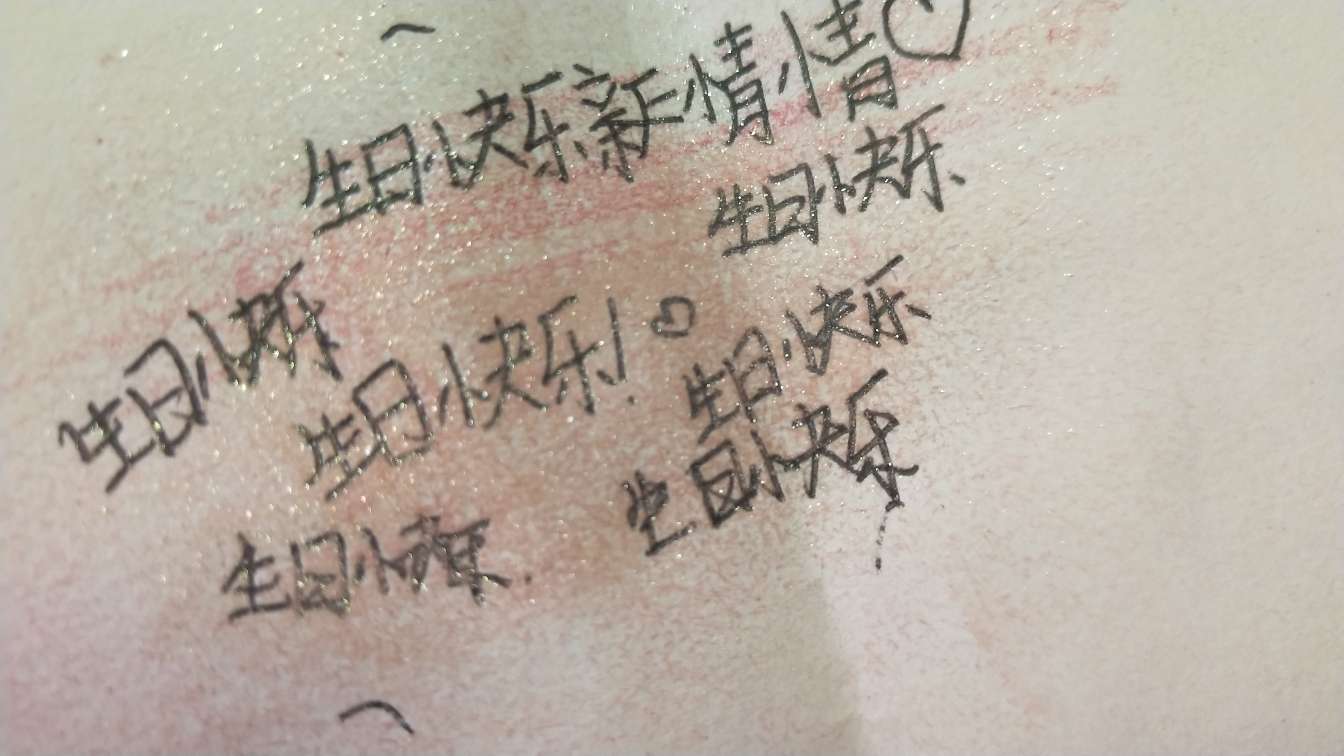 生日快乐亲情情
生日快乐
生日快乐
生日快乐!
生日快乐
生日快乐
生日快乐